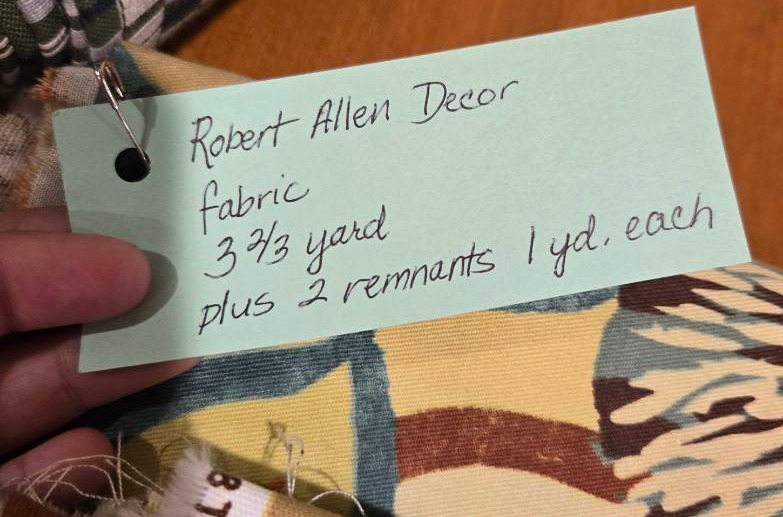 Robert Allen Decor
fabric
3 2/3 yard
plus 2 remnants 1 yd. each